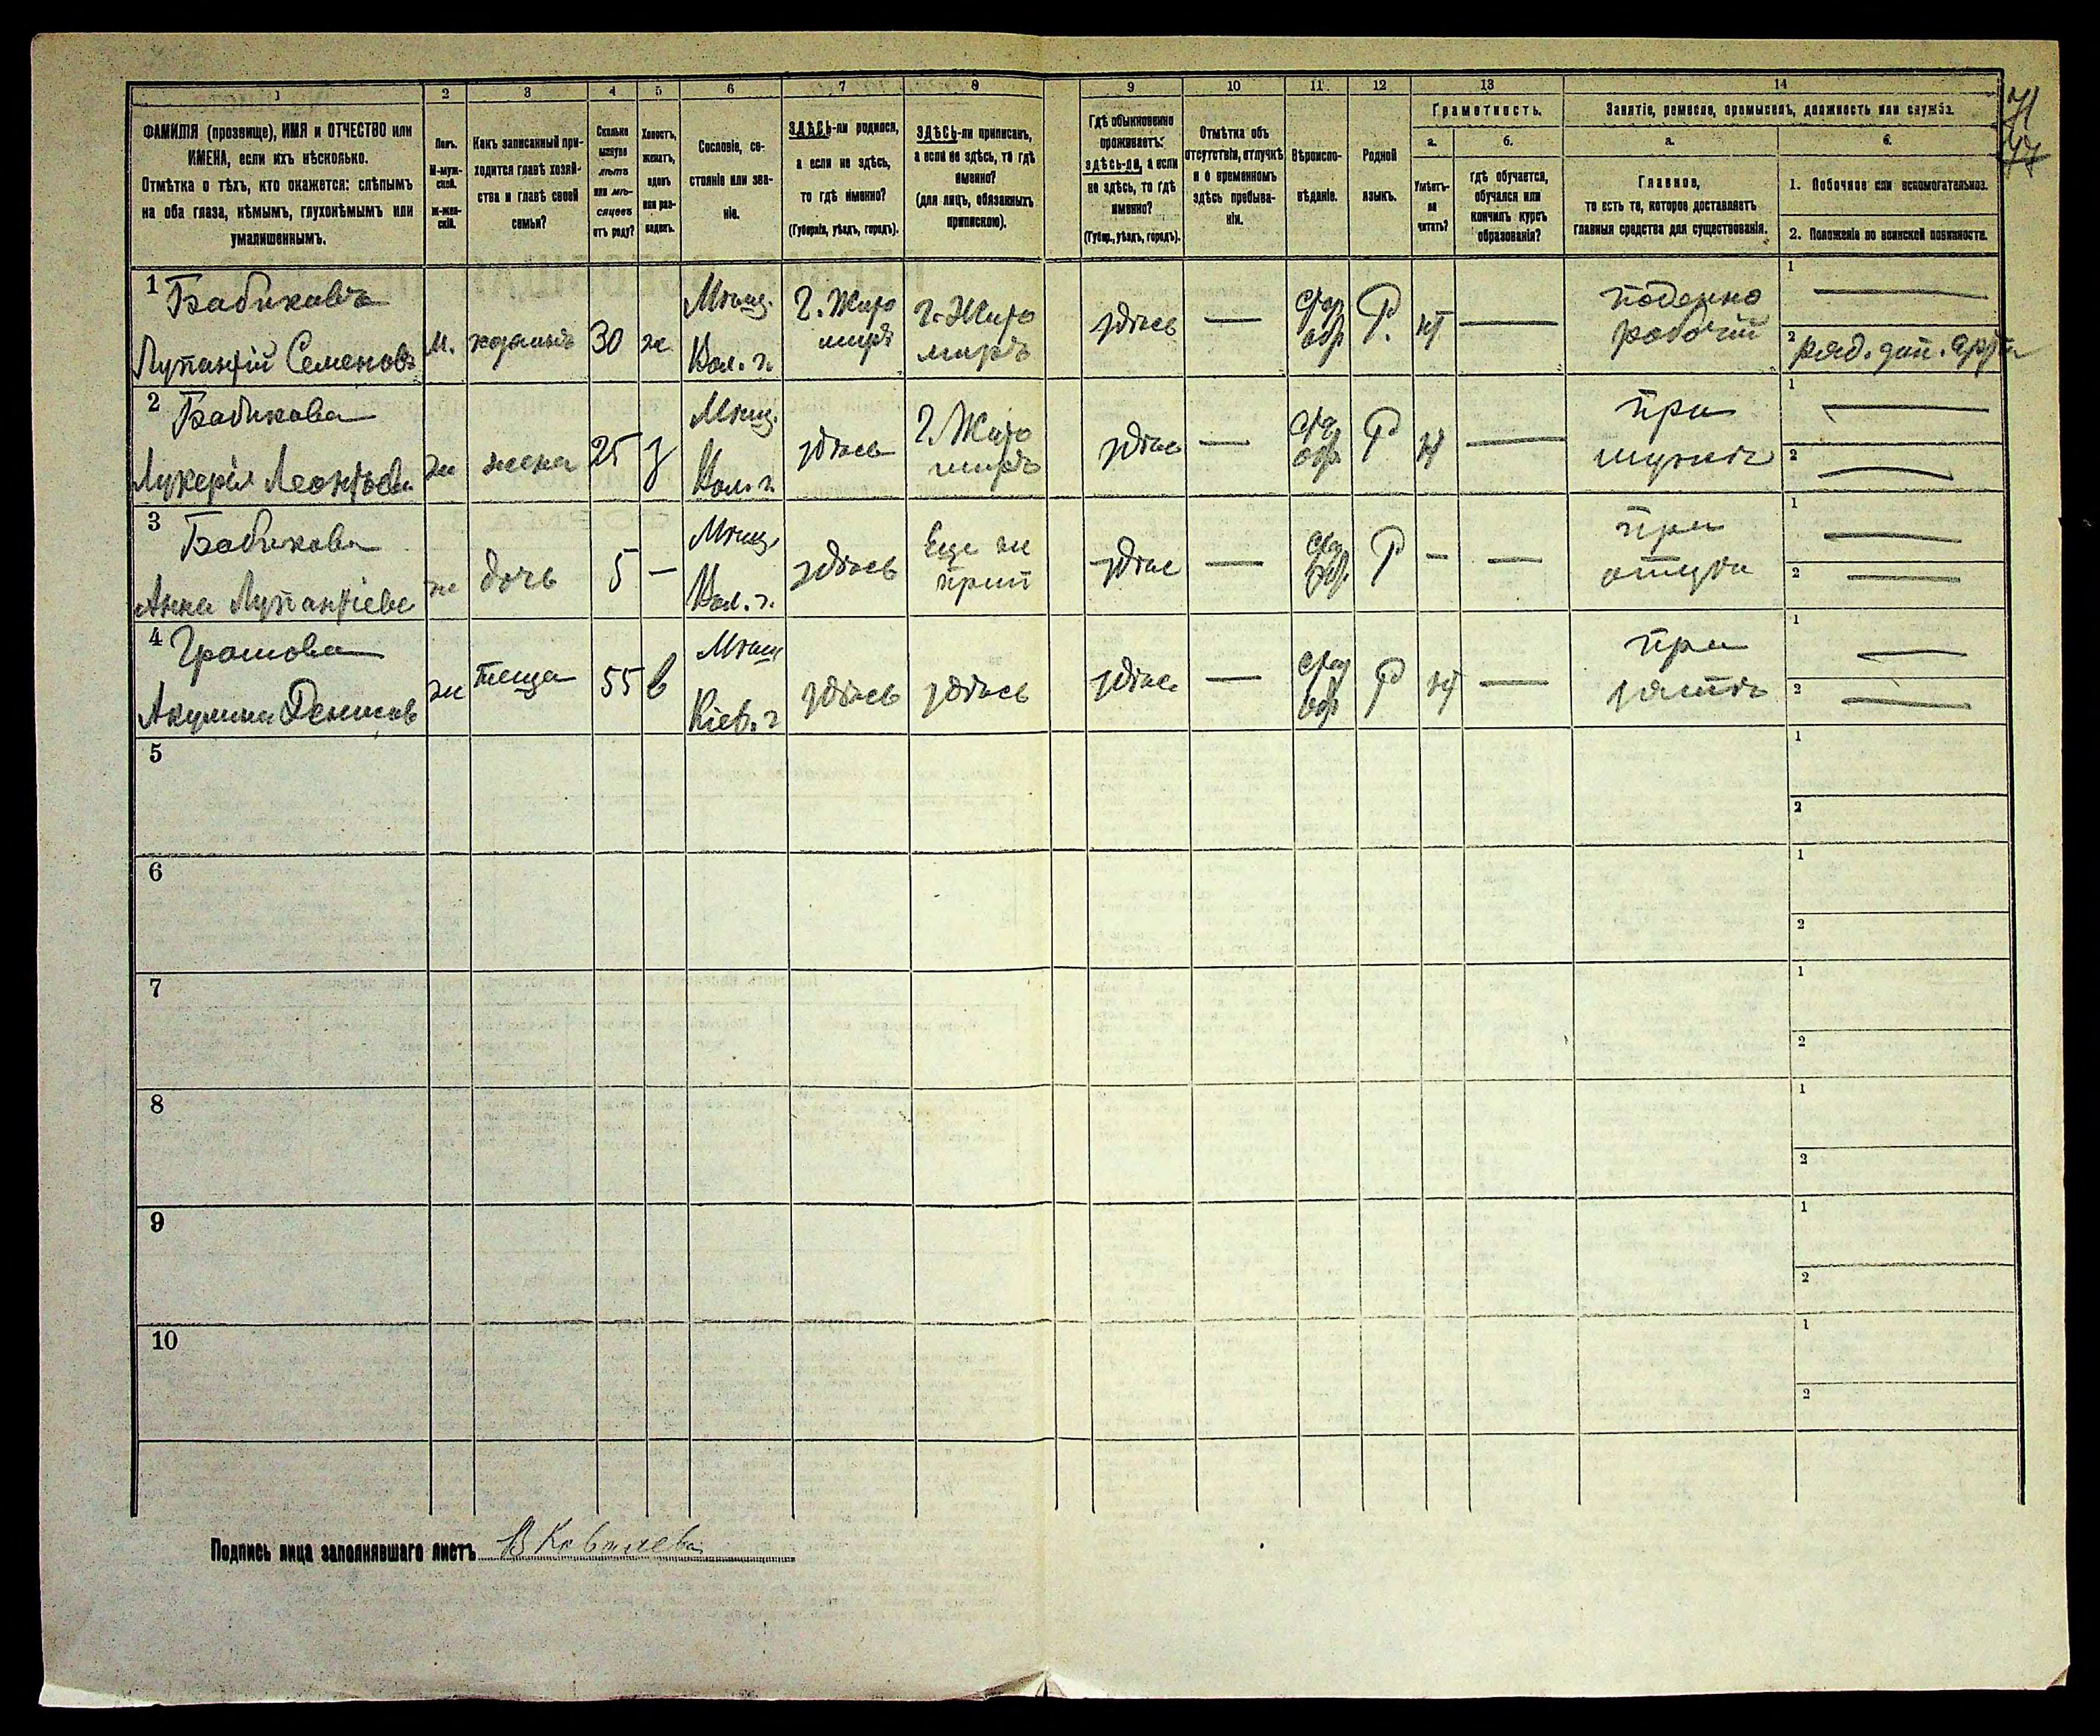 1 2 3 4 5 6 7 8 9 10 11 12 13 14
ФАМИЛІЯ (прозвище), ИМЯ и ОТЧЕСТВО или
ИМЕНА, если ихъ нѣсколько.
Отмѣтка о тѣхъ, кто окажется: слѣпымъ
на оба глаза, нѣмымъ, глухонѣмымъ или
умалишеннымъ.
Полъ.
М-муж-
ской.
Ж-жен-
скій.
Какъ записанный при-
ходится главѣ хозяй-
ства и главѣ своей
семьи?
Сколько
минуло
лѣтъ
или мѣ-
сяцевъ
отъ роду?
Холостъ,
женатъ,
вдовъ
или раз-
веденъ.
Сословіе, со-
стояніе или зва-
ніе.
ЗДѢСЬ-ли родился,
а если не здѣсь,
то гдѣ именно?
(Губернія, уѣздъ, городъ).
ЗДѢСЬ-ли приписанъ,
а если не здѣсь, то гдѣ
именно?
(для лицъ, обязанныхъ
припискою).
Гдѣ обыкновенно
проживаетъ:
здѣсь-ли, а если
не здѣсь, то гдѣ
именно?
(Губер., уѣздъ, городъ).
Отмѣтка объ
отсутствіи, отлучкѣ
и о временномъ
здѣсь пребыва-
ніи.
Вѣроиспо-
вѣданіе.
Родной
языкъ.
Грамотность.
а.
Умѣетъ-
ли
читать?
б.
гдѣ обучается,
обучался или
кончилъ курсъ
образованія?
Занятіе, ремесло, промыселъ, должность или служба.
а.
Главное,
то есть то, которое доставляетъ
главныя средства для существованія.
б.
1. Побочное или вспомогательное.
2. Положеніе по воинской повинности.
71
1 Бабиковъ
Лупантій Семеновъ
м.
30
ж
Мѣщ.
Кол. г.
г. Жито
миръ
г. Жито
миръ
здѣсь
—
Р.
нѣт
—
поденно
рабочій
1 —
2 ряд. зап.
2 Бабикова
Лукерія Леонтьева
ж
жена
25
з
Мѣщ.
Кол. г.
здѣсь
г. Жито
миръ
здѣсь
—
Р
нѣт
—
при
мужѣ
1 —
2 —
3 Бабикова
Анна Лупантіева
ж
дочь
5
—
Мѣщ.
Кол. г.
здѣсь
Еще не
прип
здѣсь
—
Р
—
—
при
отцѣ
1 —
2 —
4 Громова
Акулина Денисов
ж
теща
55
в
Мѣщ
Кіев. г
здѣсь
здѣсь
здѣсь
—
Р
нѣт
—
при
зятѣ
1 —
2 —
5
1
2
6
1
2
7
1
2
8
1
2
9
1
2
10
1
2
Подпись лица заполнявшаго листъ